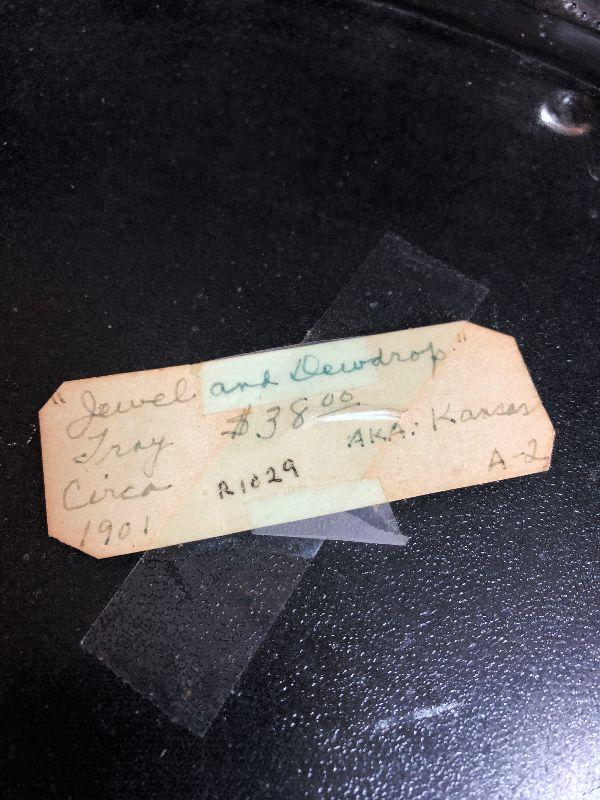 "Jewel and Dewdrop"
Tray $38.00
AKA: Kansas
Circa R1029 A-2
1901